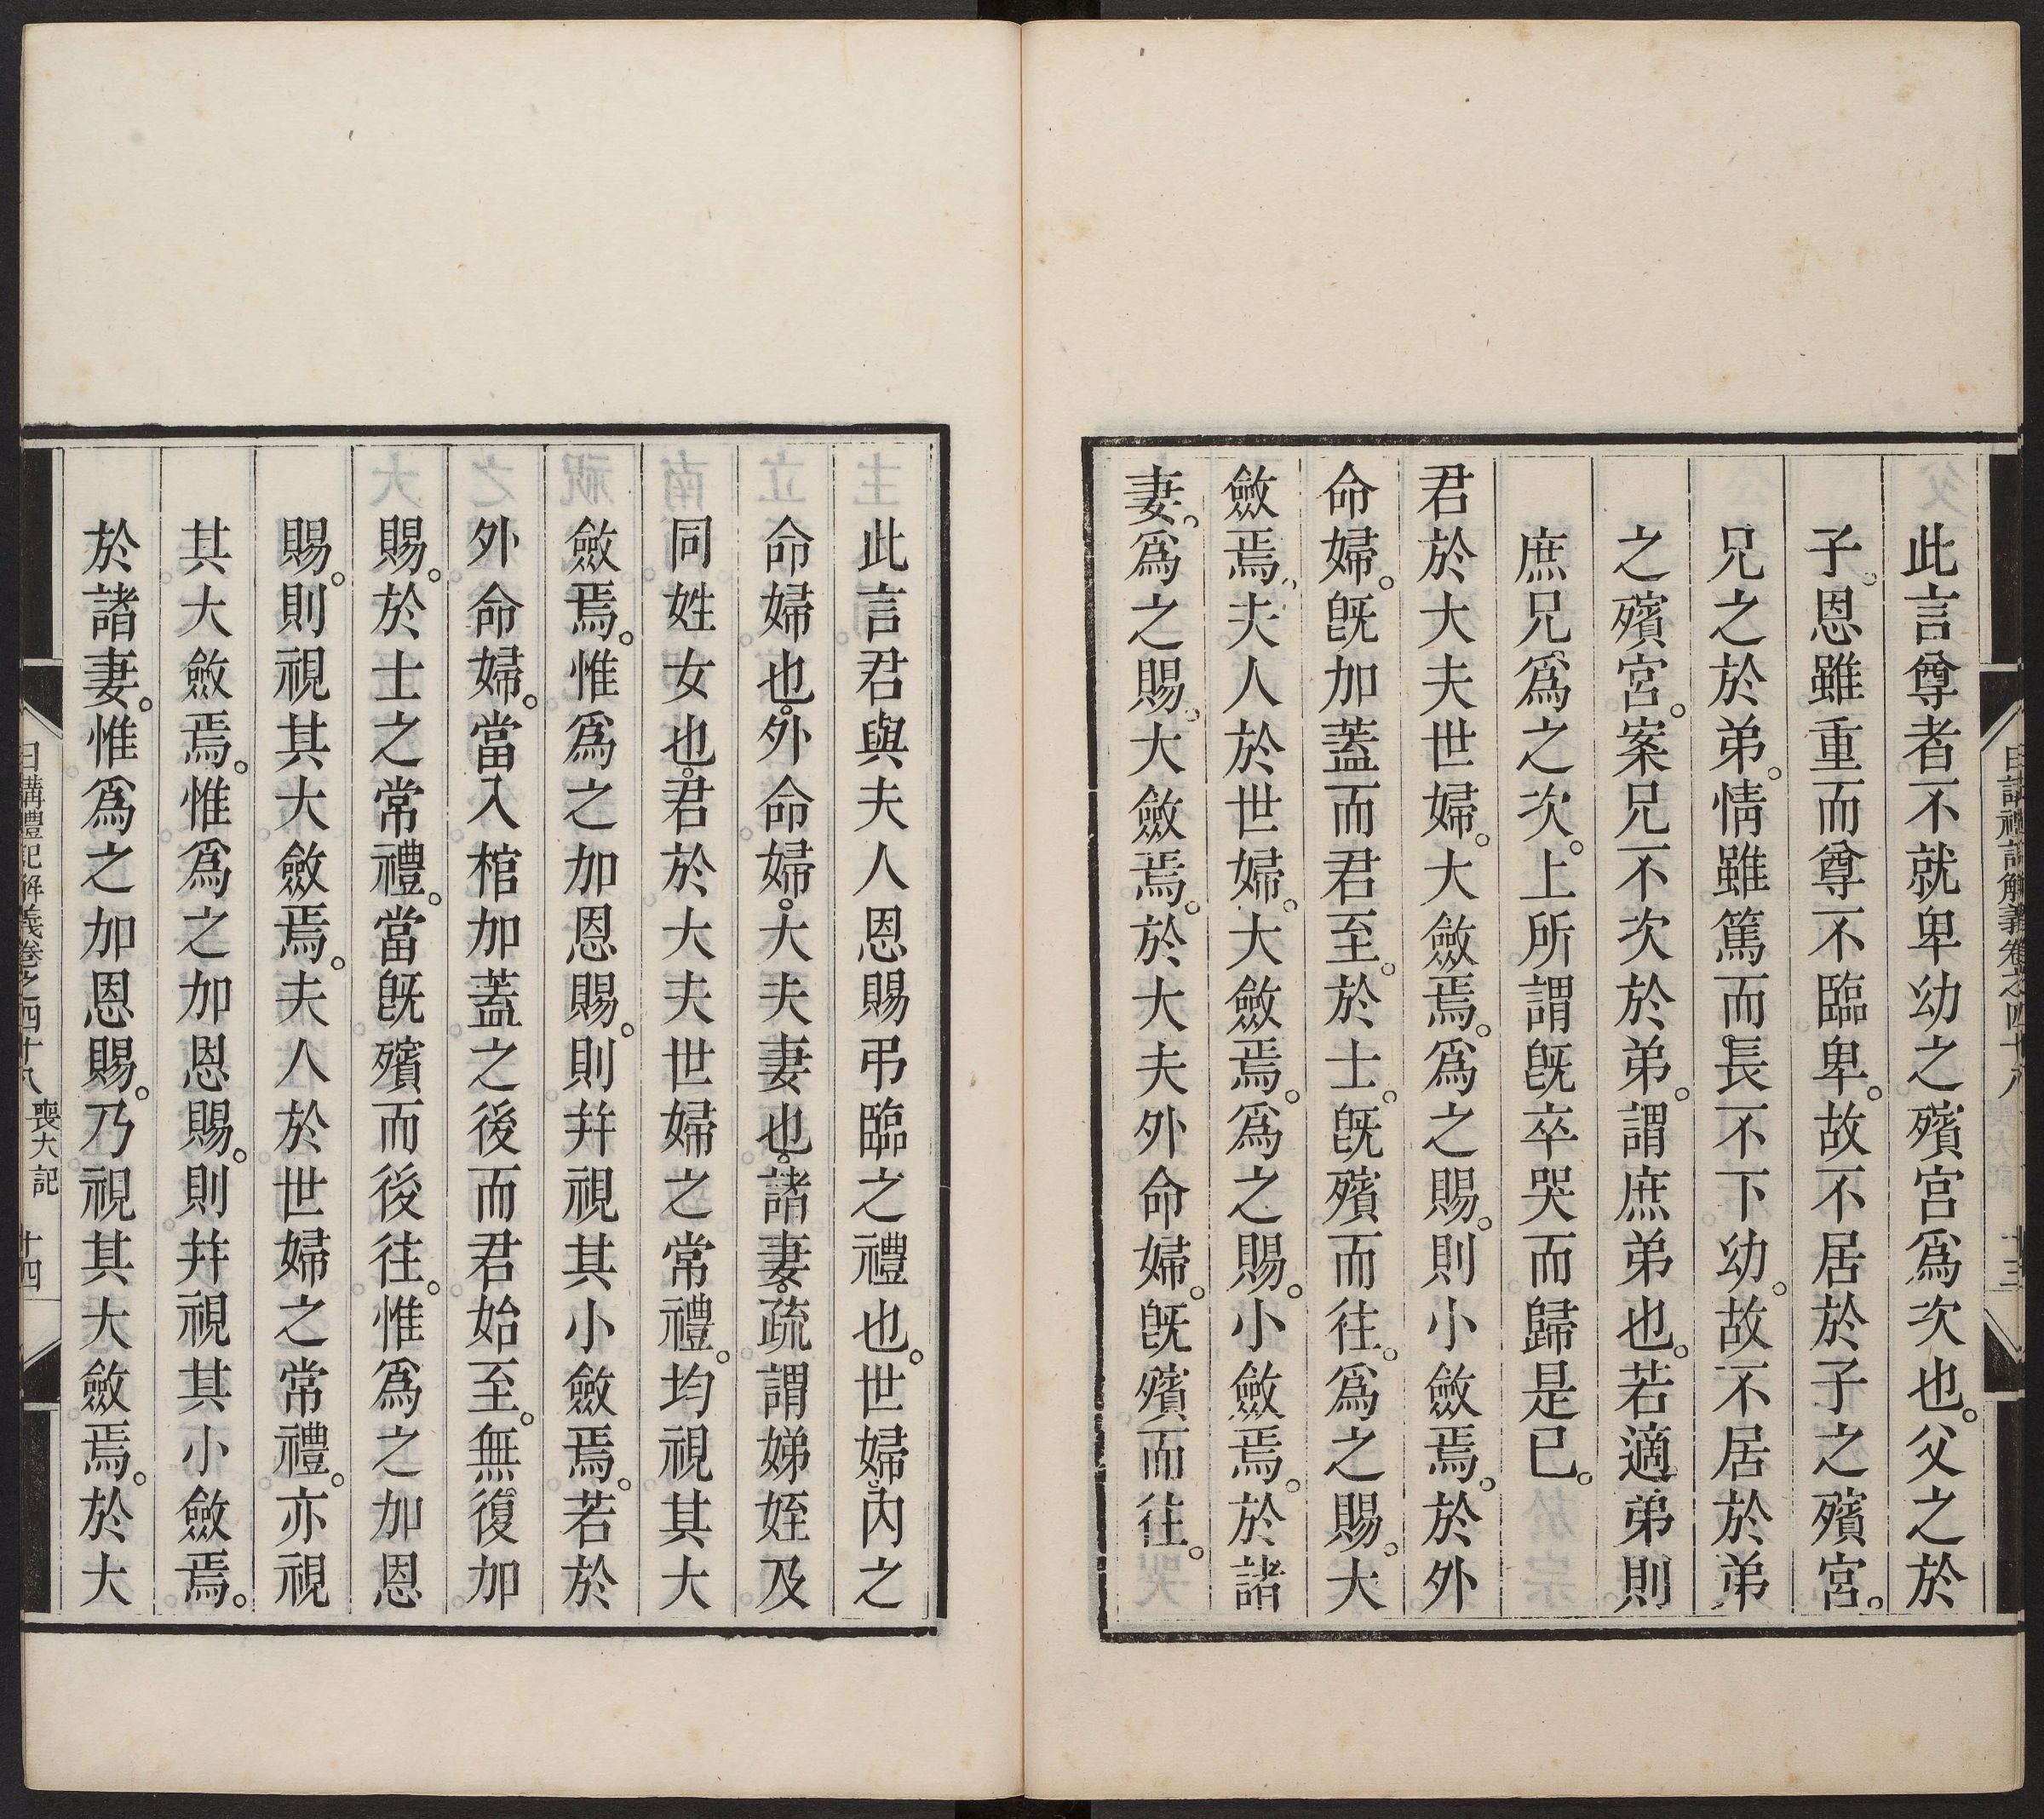 日講禮記解義卷之四十八 十三
此言尊者不就卑幼之殯宮爲次也。父之於
子。恩雖重而尊不臨卑。故不居於子之殯宮。
兄之於弟。情雖篤而長不下幼。故不居於弟
之殯宮。案兄不次於弟。謂庶弟也。若適弟則
庶兄爲之次。上所謂旣卒哭而歸是已。
君於大夫世婦。大斂焉。爲之賜。則小斂焉。於外
命婦。旣加蓋而君至。於士。旣殯而往。爲之賜。大
斂焉、夫人於世婦。大斂焉。爲之賜。小斂焉。於諸
妻。爲之賜。大斂焉。於大夫外命婦。旣殯而往。
此言君與夫人恩賜弔臨之禮也。世婦、內之
命婦也。外命婦。大夫妻也。諸妻。疏謂娣姪及
同姓女也。君於大夫世婦之常禮。均視其大
斂焉。惟爲之加恩賜。則并視其小斂焉。若於
外命婦。當入棺加蓋之後而君始至。無復加
賜。於士之常禮。當旣殯而後往。惟爲之加恩
賜。則視其大斂焉。夫人於世婦之常禮。亦視
其大斂焉。惟爲之加恩賜。則并視其小斂焉。
於諸妻。惟爲之加恩賜。乃視其大斂焉。於大
日講禮記解義卷之四十八 喪大記 十四